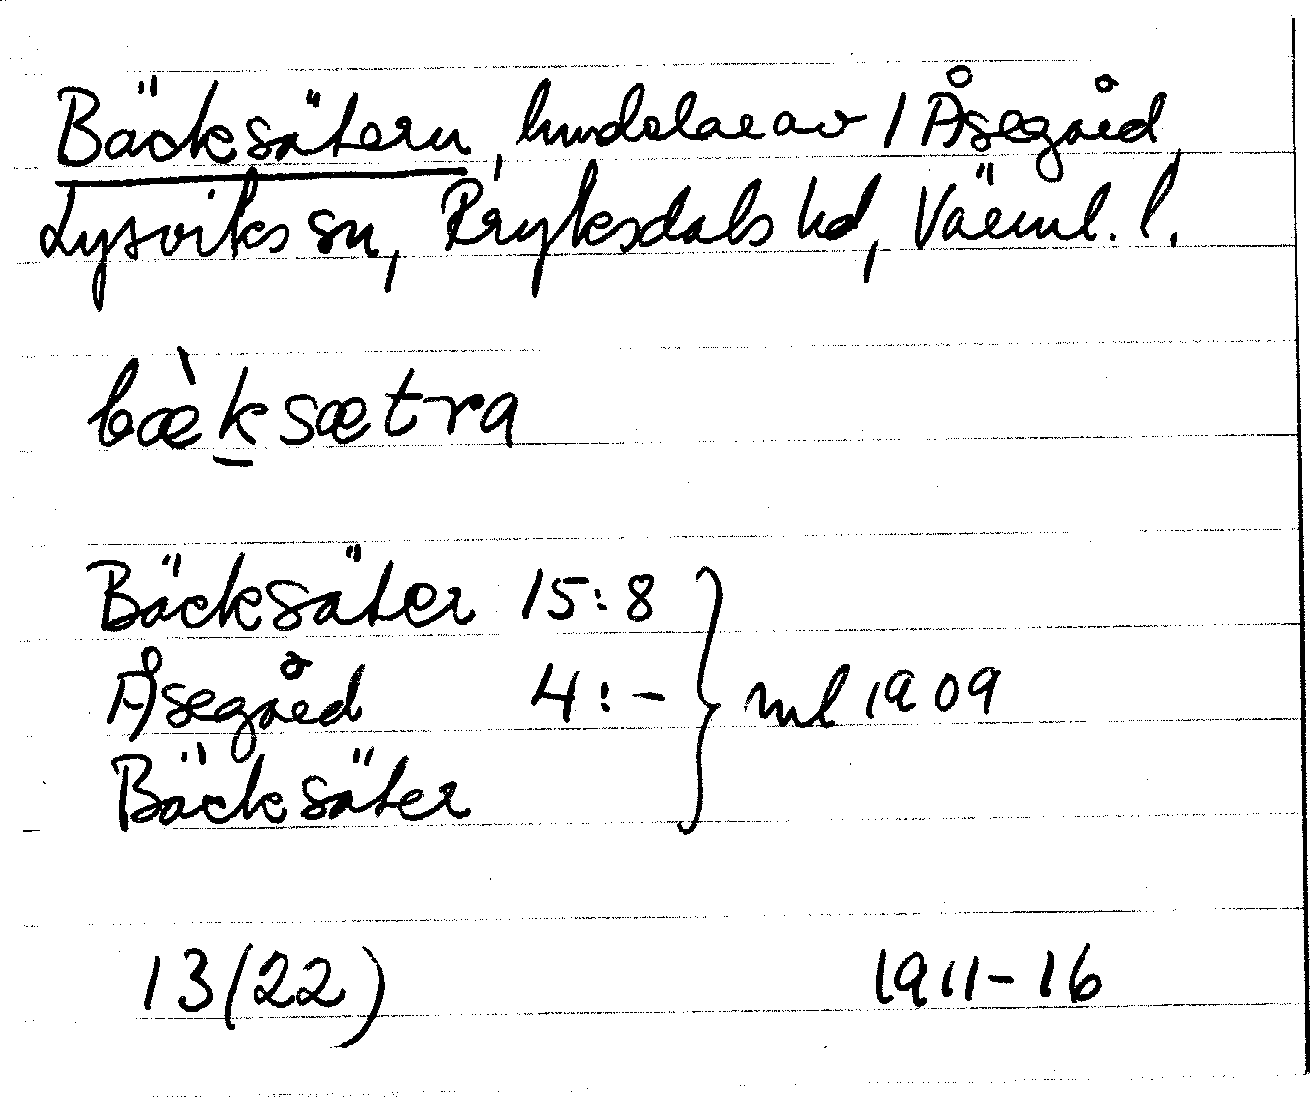 Bäcksätern, hmdelar av 1 Åsegård
Lysviks sn, Fryksdals hd, Värml. l.
bæ̀k̲sætra
Bäcksäter 15:8
Åsegård 4:- } ml 1909
Bäcksäter
13(22) 1911-16